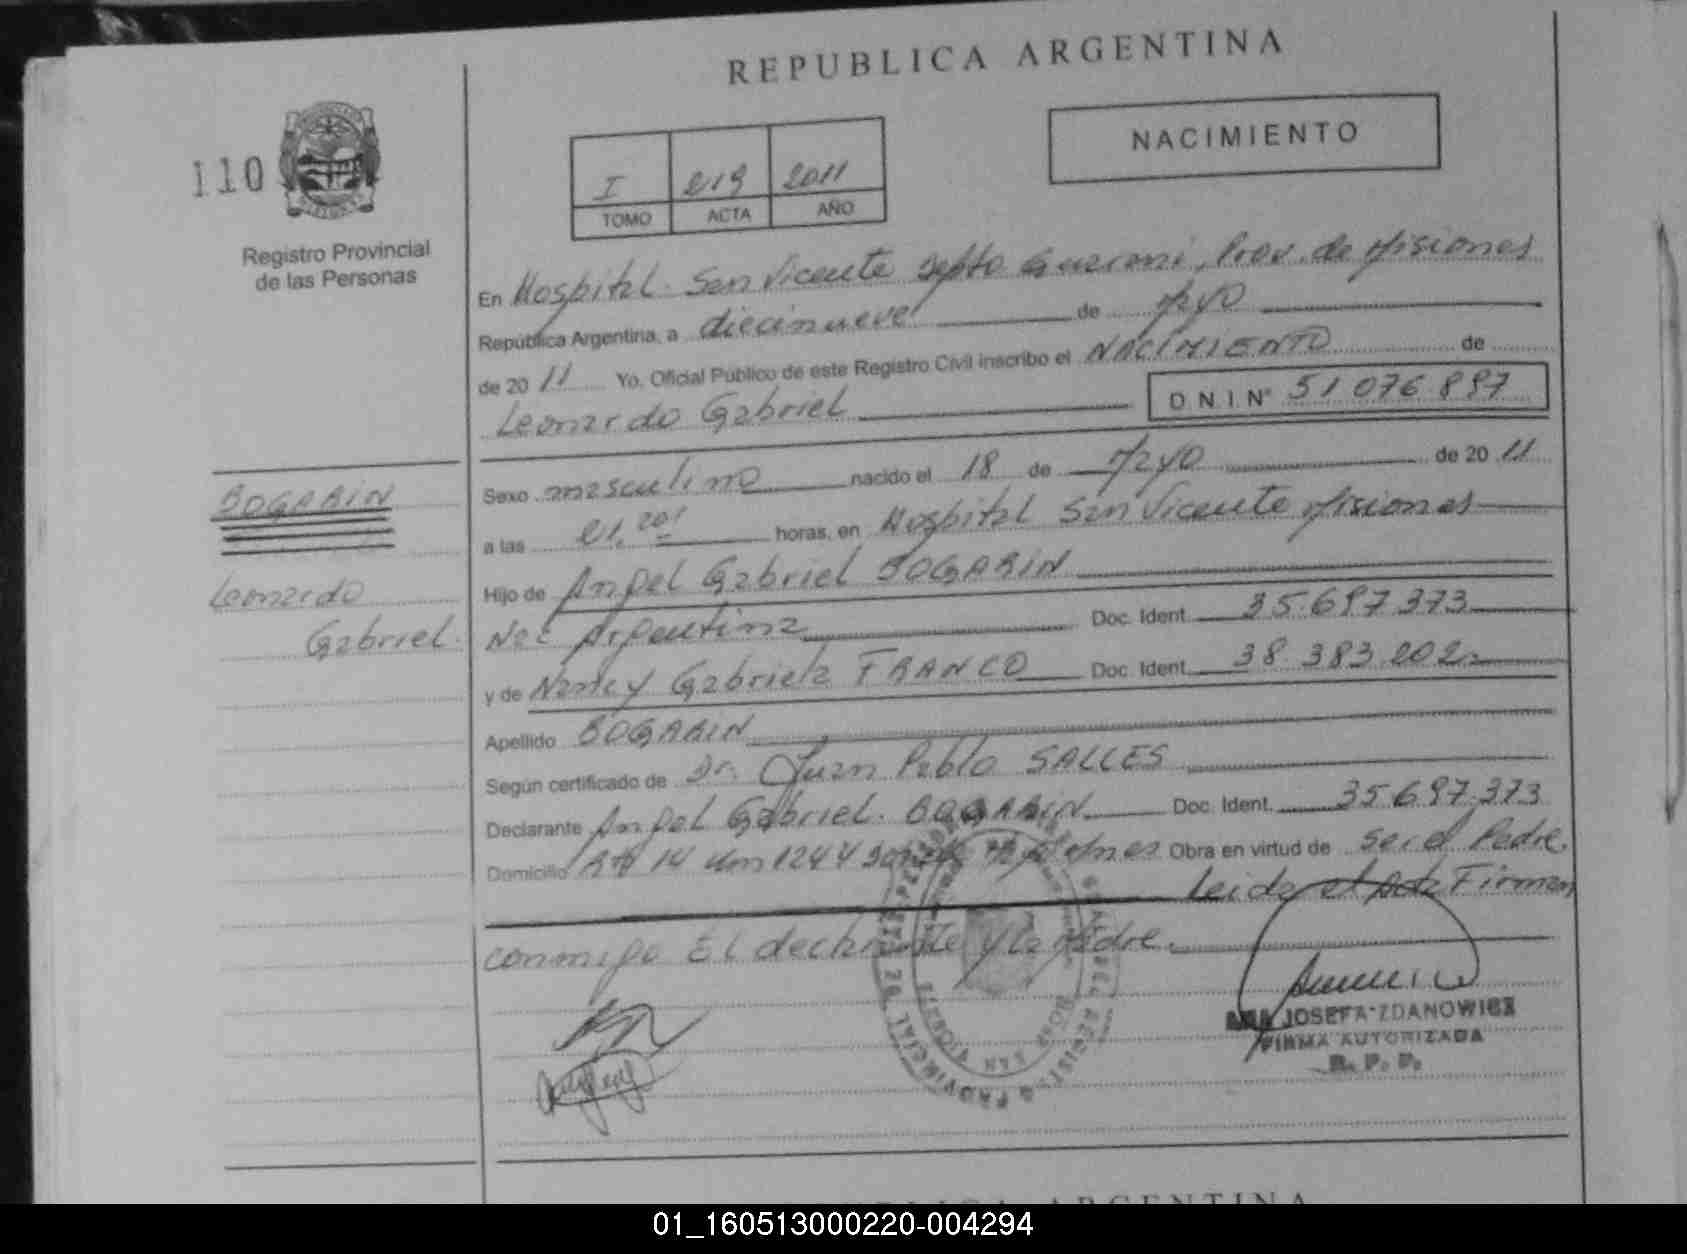 REPUBLICA ARGENTINA
NACIMIENTO
110
I 219 2011
TOMO ACTA AÑO
Registro Provincial
de las Personas
En Hospital San Vicente Depto Guarani, Prov. de Misiones
República Argentina, a diecinueve de Mayo
de 2011 Yo, Oficial Público de este Registro Civil inscribo el NACIMIENTO de
Leonardo Gabriel D.N.I. Nº 51 076 897
BOGARIN
Leonardo
Gabriel.
Sexo masculino nacido el 18 de Mayo de 2011
a las 21,20' horas, en Hospital San Vicente Misiones
Hijo de Angel Gabriel BOGARIN
Nac Argentina Doc. Ident. 35.697.373
y de Nancy Gabriela FRANCO Doc. Ident. 38.383.202
Apellido BOGARIN
Según certificado de Dr. Juan Pablo SALLES
Declarante Angel Gabriel. BOGARIN Doc. Ident. 35.697.373
Domicilio Rta 14 Km 1244 Obra en virtud de ser el Padre.
Leida el Acta Firman
conmigo El declarante y la Madre.
JOSEFA ZDANOWICZ
FIRMA AUTORIZADA
R. P. P.
REPUBLICA ARGENTINA
01_160513000220-004294